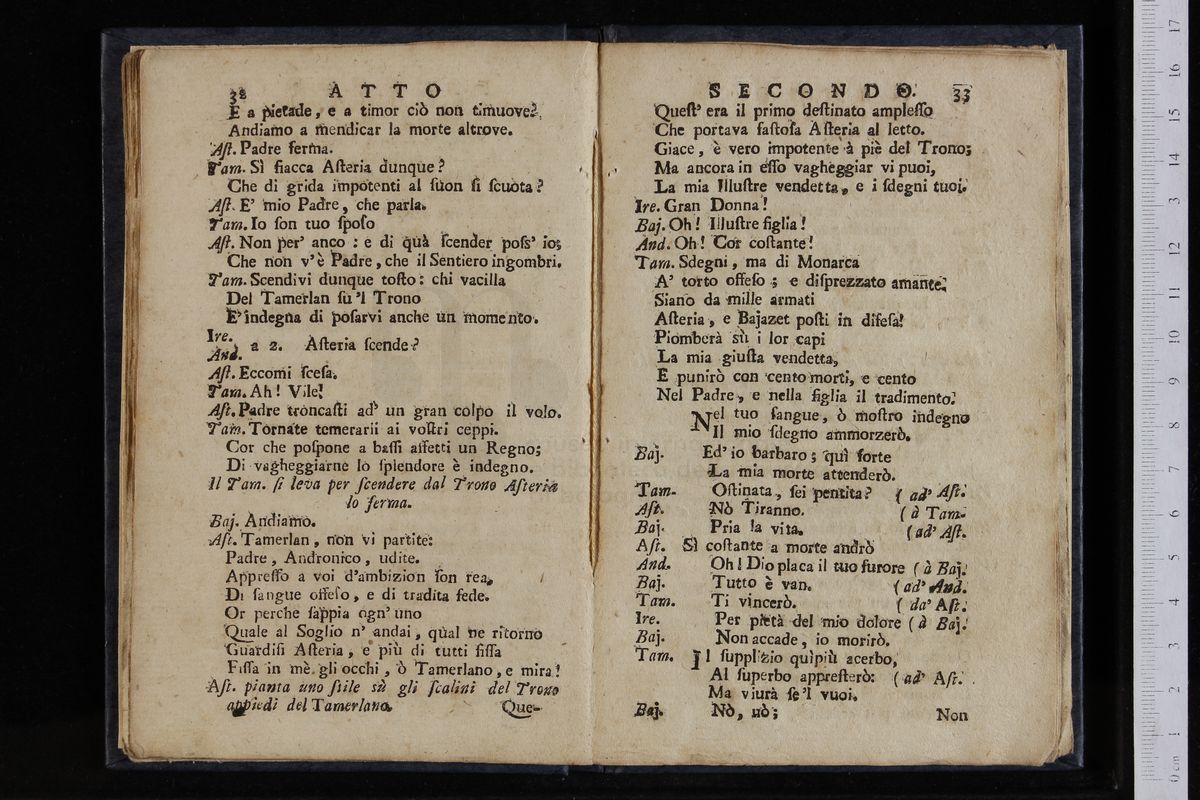 32 ATTO
E a pietade, e a timor ciò non timuove?
Andiamo a mendicar la morte altrove.
Aſt. Padre ferma.
Tam. Sì fiacca Aſteria dunque?
Che di grida impotenti al ſuon ſi ſcuota?
Aſt. E' mio Padre, che parla.
Tam. Io ſon tuo ſpoſo
Aſt. Non per' anco : e di quà ſcender poſs' io;
Che non v'è Padre, che il Sentiero ingombri.
Tam. Scendivi dunque toſto: chi vacilla
Del Tamerlan ſu 'l Trono
E' indegna di poſarvi anche un momento.
Ire.
And. a 2. Aſteria ſcende?
Aſt. Eccomi ſceſa.
Tam. Ah! Vile!
Aſt. Padre troncaſti ad' un gran colpo il volo.
Tam. Tornate temerarii ai voſtri ceppi.
Cor che poſpone a baſſi affetti un Regno;
Di vagheggiarne lo ſplendore è indegno.
Il Tam. ſi leva per ſcendere dal Trono Aſteria
lo ferma.
Baj. Andiamo.
Aſt. Tamerlan, non vi partite:
Padre, Andronico, udite.
Appreſſo a voi d'ambizion ſon rea,
Di ſangue offeſo, e di tradita fede.
Or perche ſappia ogn' uno
Quale al Soglio n' andai, qual ne ritorno
Guardiſi Aſteria, e più di tutti fiſſa
Fiſſa in mè gli occhi, ò Tamerlano, e mira!
Aſt. pianta uno ſtile sù gli ſcalini del Trono
appiedi del Tamerlano.
Que-
SECONDO. 33
Queſt' era il primo deſtinato ampleſſo
Che portava faſtoſa Aſteria al letto.
Giace, è vero impotente à piè del Trono;
Ma ancora in eſſo vagheggiar vi puoi,
La mia Illuſtre vendetta, e i ſdegni tuoi.
Ire. Gran Donna!
Baj. Oh! Illuſtre figlia!
And. Oh! Cor coſtante!
Tam. Sdegni, ma di Monarca
A' torto offeſo ; e diſprezzato amante.
Siano da mille armati
Aſteria, e Bajazet poſti in difeſa!
Piomberà sù i lor capi
La mia giuſta vendetta,
E punirò con cento morti, e cento
Nel Padre, e nella figlia il tradimento.
Nel tuo ſangue, ò moſtro indegno
Il mio ſdegno ammorzerò.
Baj. Ed' io barbaro ; quì forte
La mia morte attenderò.
Tam. Oſtinata, ſei pentita? ( ad' Aſt.
Aſt. Nò Tiranno. ( à Tam.
Baj. Pria la vita. ( ad' Aſt.
Aſt. Sì coſtante a morte andrò
And. Oh! Dio placa il tuo furore ( à Baj.
Baj. Tutto è van. ( ad' And.
Tam. Ti vincerò. ( da' Aſt.
Ire. Per pietà del mio dolore ( à Baj.
Baj. Non accade, io morirò.
Tam. Il ſupplizio quìpiù acerbo,
Al ſuperbo appreſterò: ( ad' Aſt.
Ma viurà ſe 'l vuoi.
Baj. Nò, nò;
Non
0 cm 1 2 3 4 5 6 7 8 9 10 11 12 13 14 15 16 17